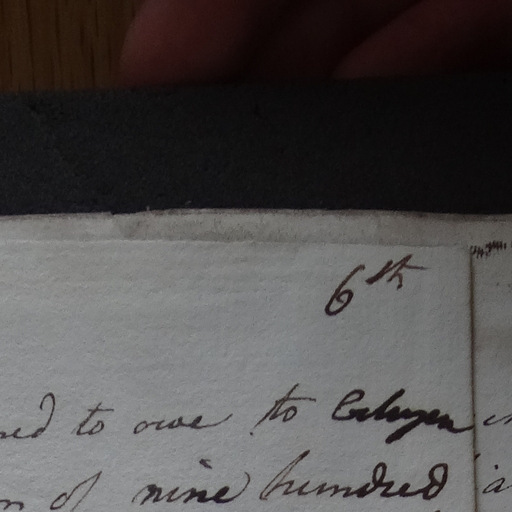 6th
ed to owe to Citizen
of nine hundred